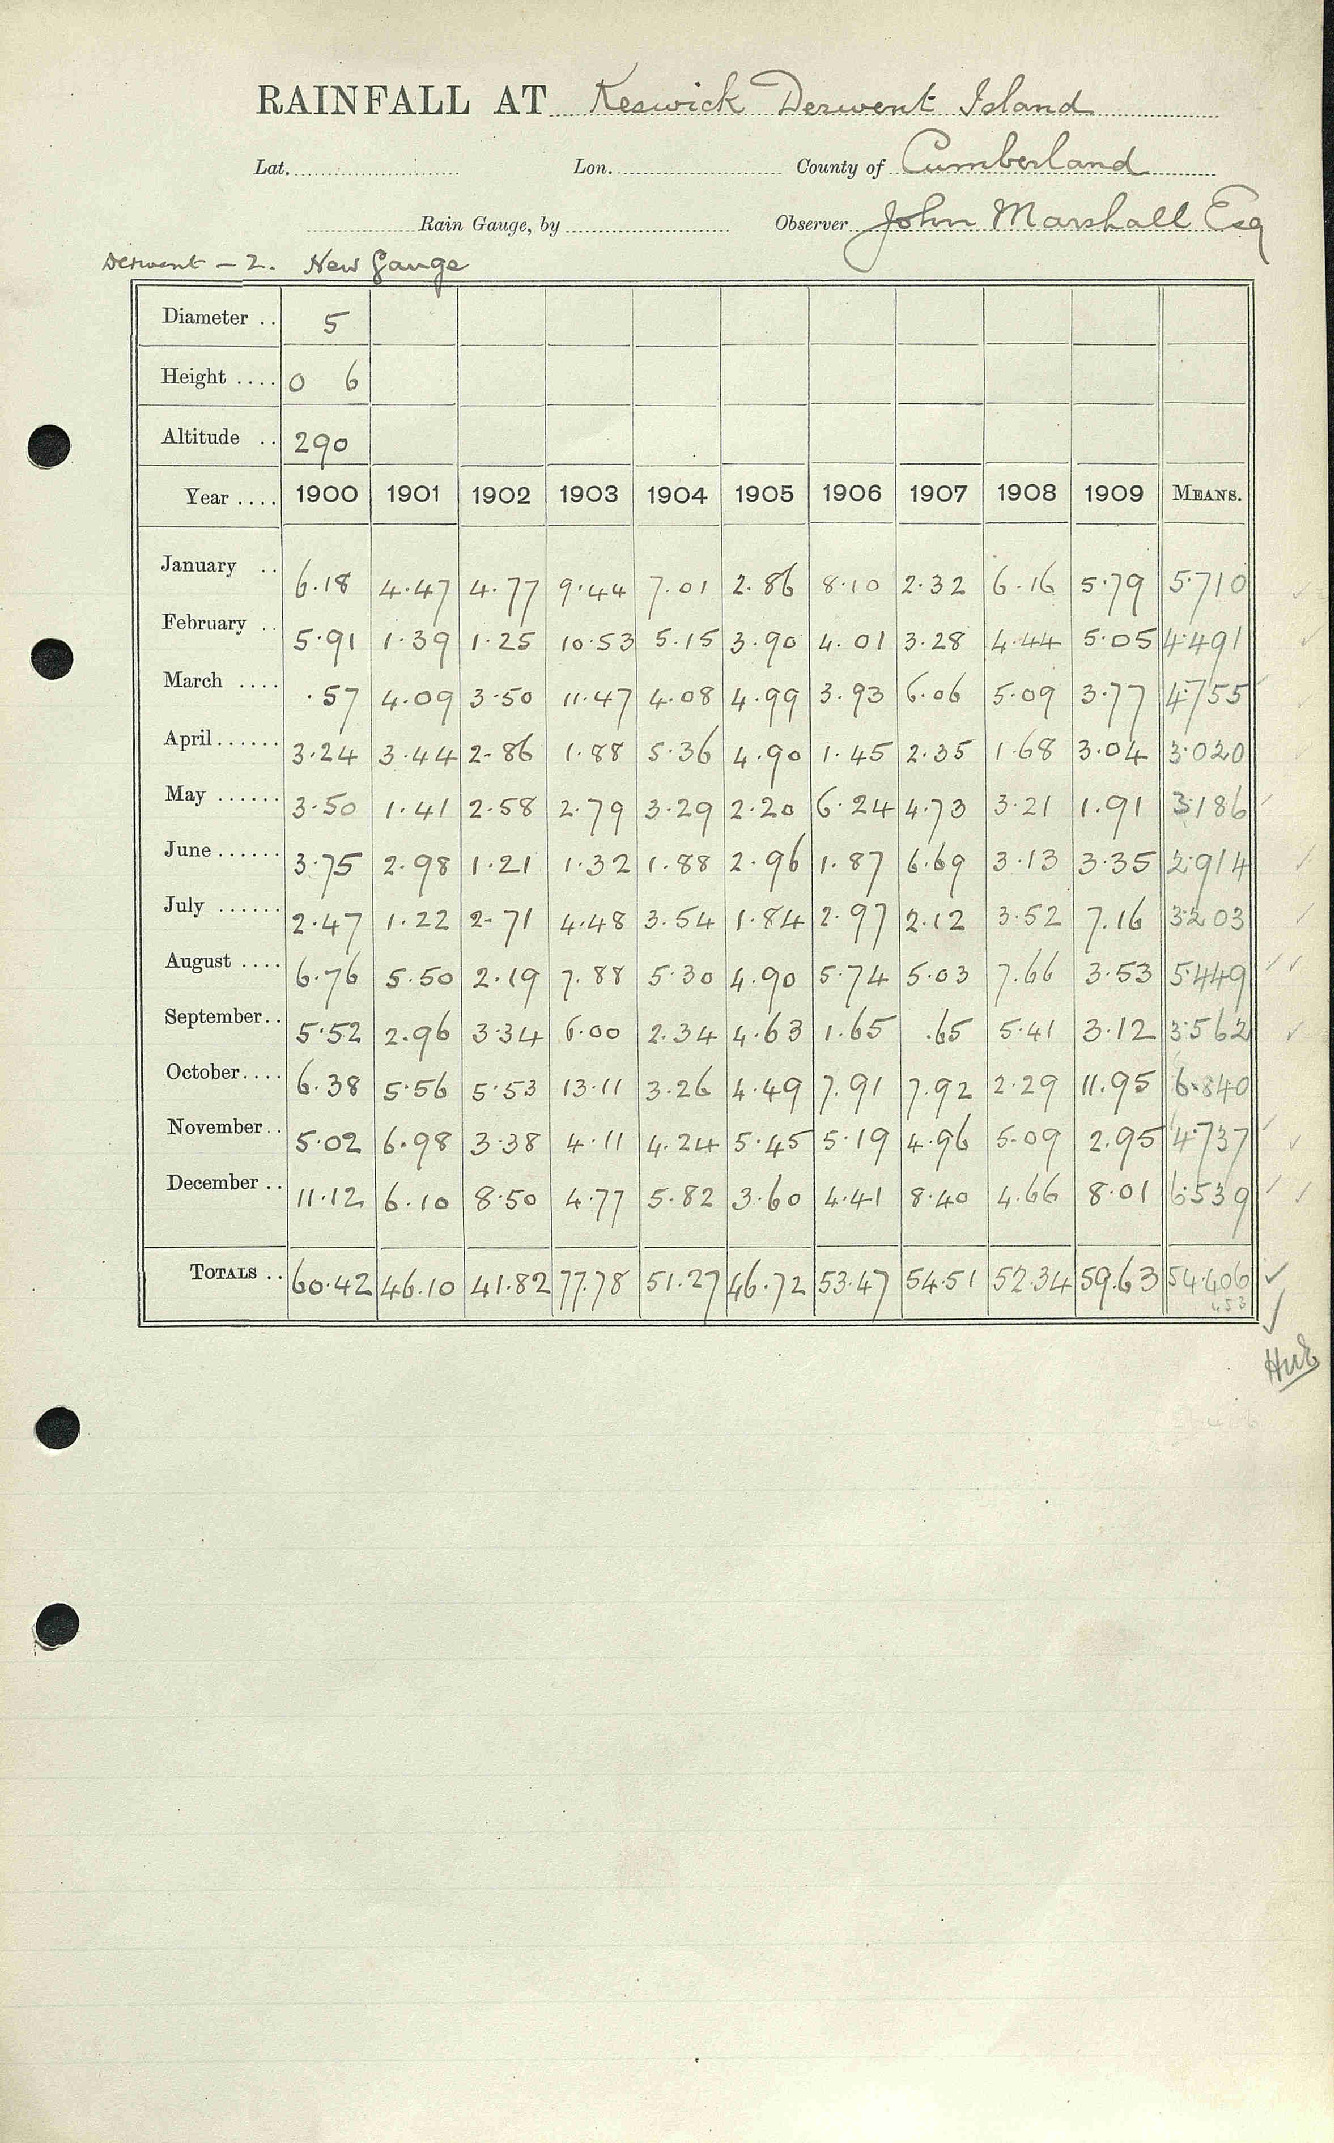 RAINFALL AT Keswick Derwent Island
Lat. Lon. County of Cumberland
Rain Gauge, by Observer John Marshall Esq
Derwent - 2. New Gauge
Diameter .. 5
Height .... 0 6
Altitude .. 290
Year .... 1900 1901 1902 1903 1904 1905 1906 1907 1908 1909 MEANS.
January .. 6.18 4.47 4.77 9.44 7.01 2.86 8.10 2.32 6.16 5.79 5.710
February .. 5.91 1.39 1.25 10.53 5.15 3.90 4.01 3.28 4.44 5.05 4.491
March .... .57 4.09 3.50 11.47 4.08 4.99 3.93 6.06 5.09 3.77 4.755
April...... 3.24 3.44 2.86 1.88 5.36 4.90 1.45 2.35 1.68 3.04 3.020
May ...... 3.50 1.41 2.58 2.79 3.29 2.20 6.24 4.73 3.21 1.91 3.186
June...... 3.75 2.98 1.21 1.32 1.88 2.96 1.87 6.69 3.13 3.35 2.914
July ...... 2.47 1.22 2.71 4.48 3.54 1.84 2.97 2.12 3.52 7.16 3.203
August .... 6.76 5.50 2.19 7.88 5.30 4.90 5.74 5.03 7.66 3.53 5.449
September.. 5.52 2.96 3.34 6.00 2.34 4.63 1.65 .65 5.41 3.12 3.562
October.... 6.38 5.56 5.53 13.11 3.26 4.49 7.91 7.92 2.29 11.95 6.840
November.. 5.02 6.98 3.38 4.11 4.24 5.45 5.19 4.96 5.09 2.95 4.737
December .. 11.12 6.10 8.50 4.77 5.82 3.60 4.41 8.40 4.66 8.01 6.539
TOTALS .. 60.42 46.10 41.82 77.78 51.27 46.72 53.47 54.51 52.34 59.63 54.406